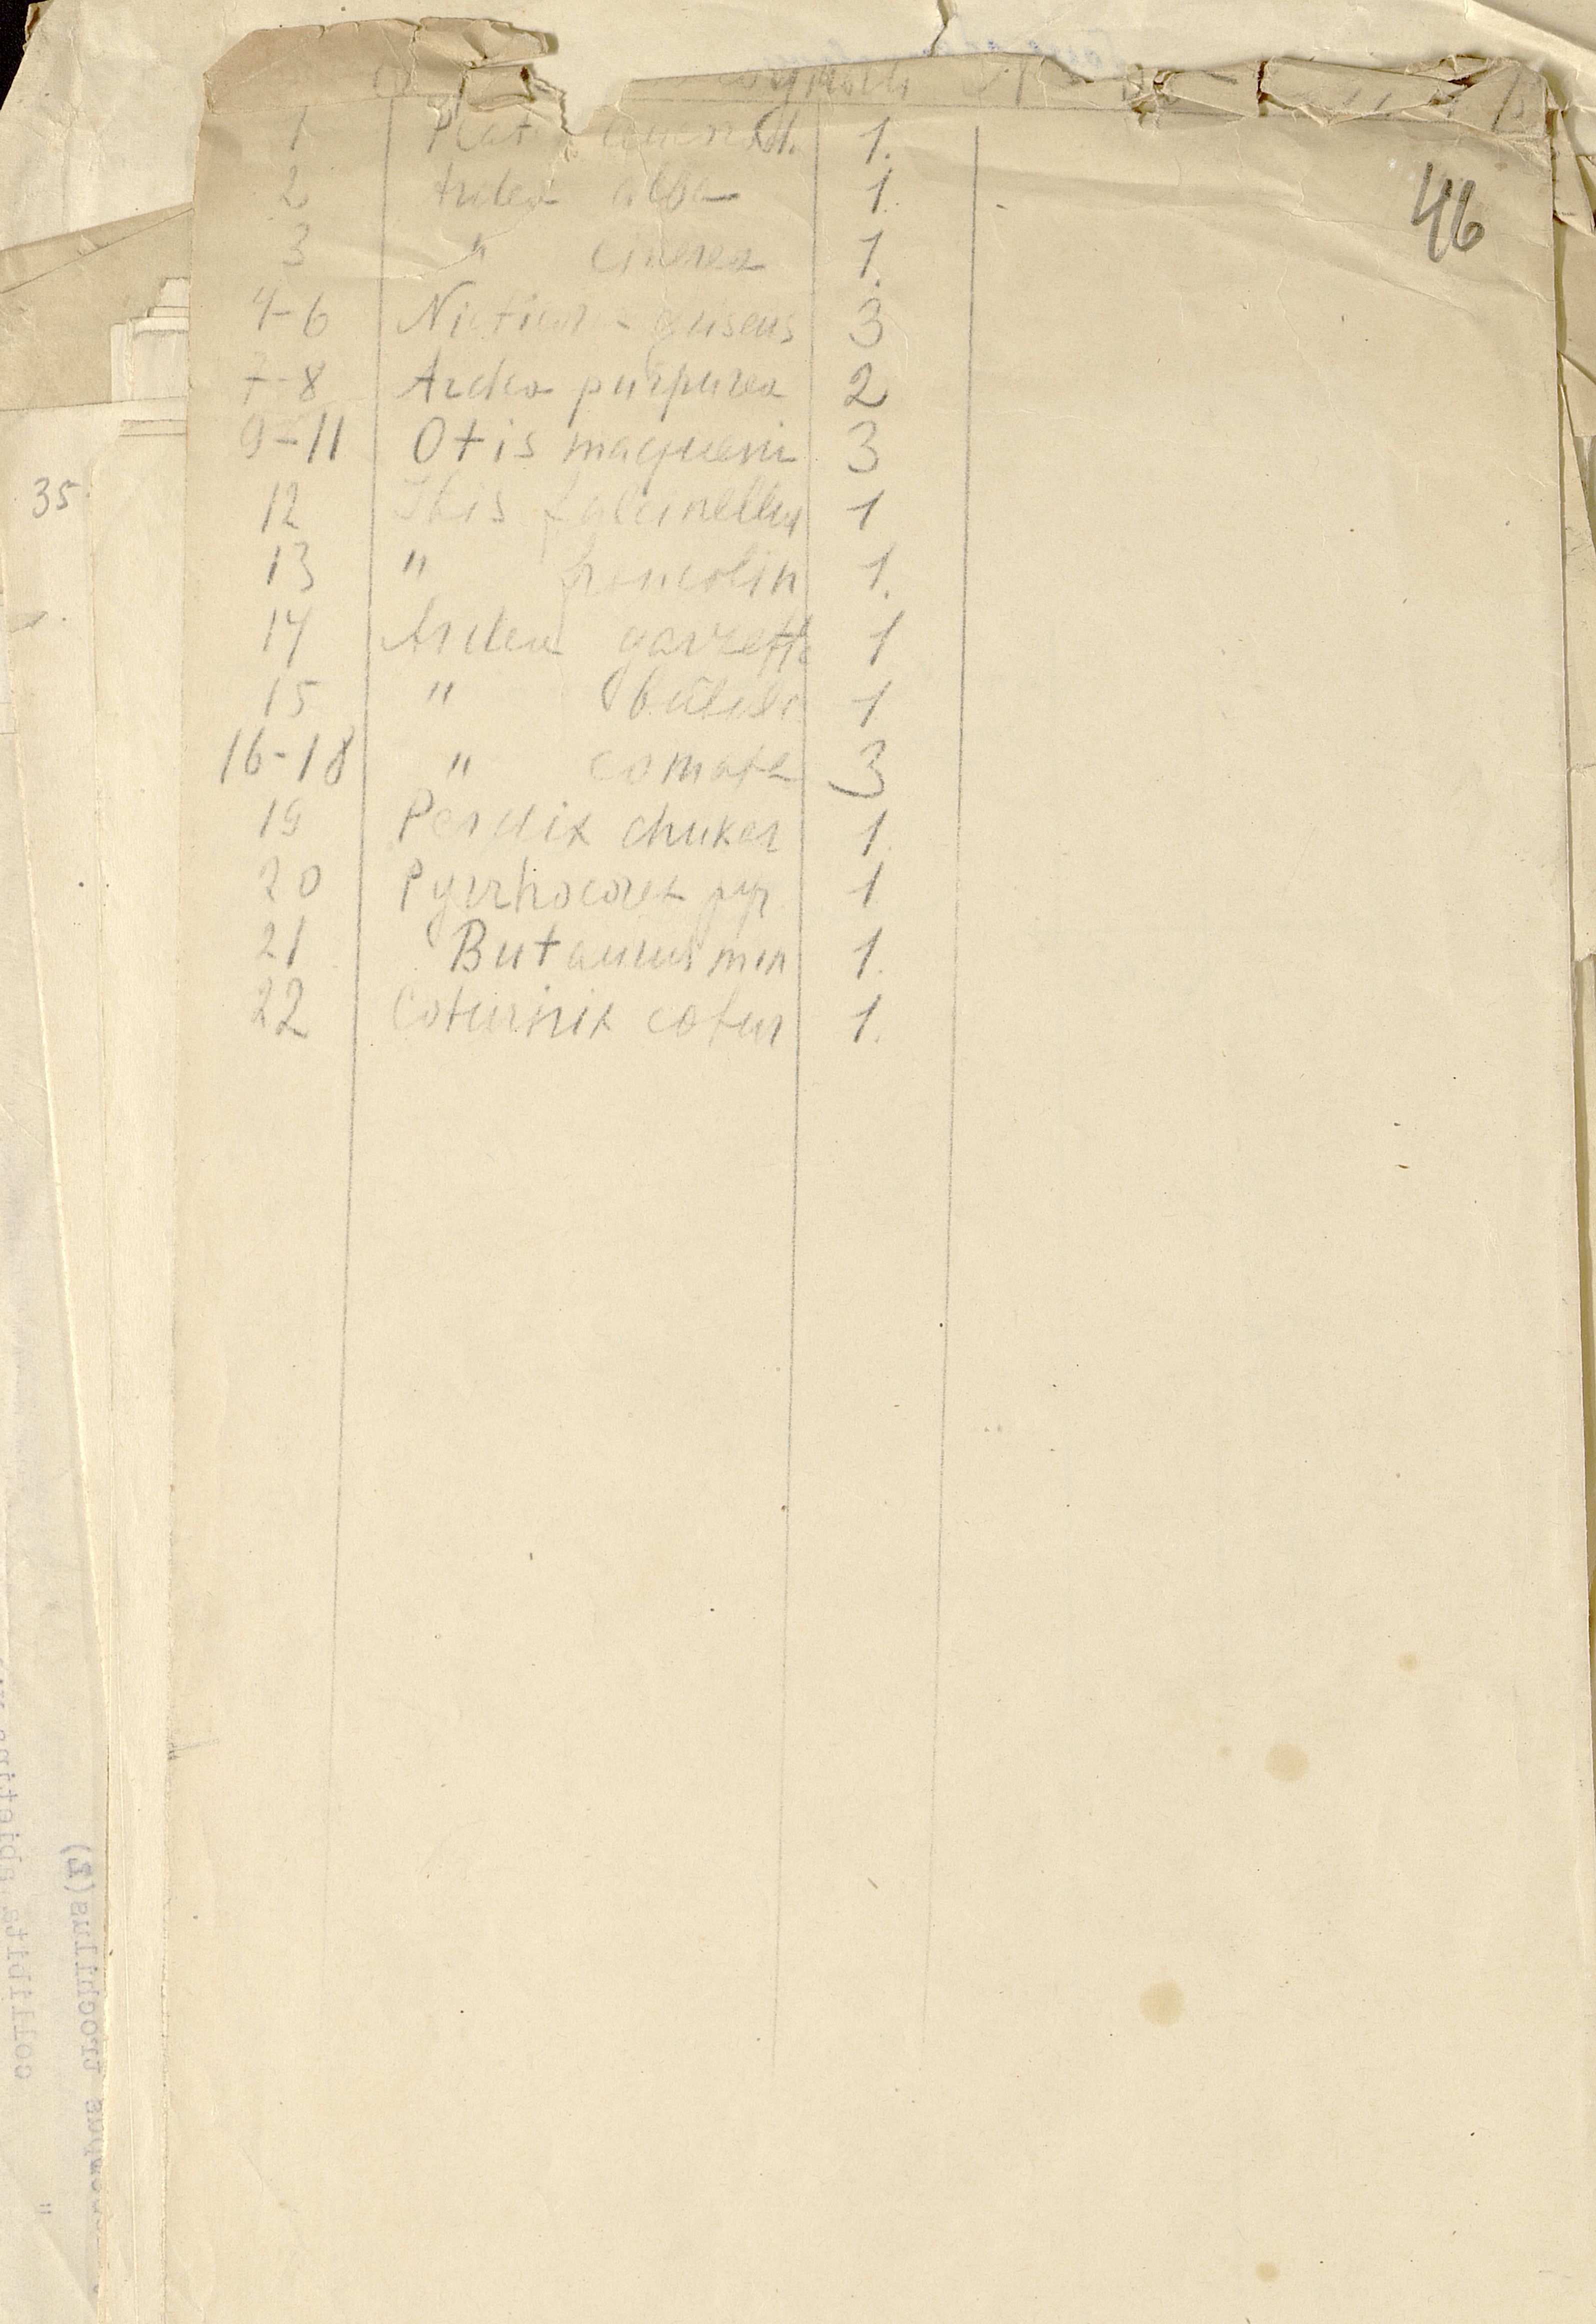 46
1 Plat 1.
2 Ardea alba 1.
3 " cinerea 1.
4-6 Nicticorax griseus 3
7-8 Ardea purpurea 2
9-11 Otis maqueni 3
12 Ibis falcinellus 1
13 " francolin 1.
14 Ardea garzetta 1
15 " 1
16-18 " comata 3
19 Perdix chukar 1.
20 Pyrrhocorax pyr 1
21 Butaurus min 1.
22 Coturnix cotur 1.
35